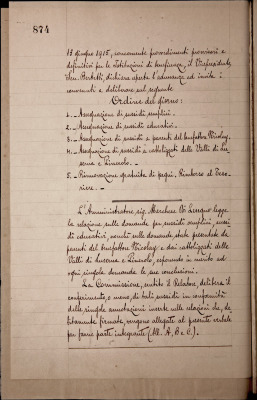 874
13 giugno 1915, concernente provvedimenti provvisori e
definitivi per le istituzioni di beneficenza, il Vicepresidente,
Sen. Bertetti, dichiara aperta l'adunanza ed invita i
convenuti a deliberare sul seguente
Ordine del giorno:
1. - Assegnazione di sussidi semplici.
2. - Assegnazione di sussidi educativi.
3. - Assegnazione di sussidi a parenti del benefattore Nicolay.
4. - Assegnazione di sussidi a cattolizzati delle Valli di Lu-
serna e Pinerolo. -
5. - Rinnovazione gratuita di pegni. Rimborso al Teso-
riere. -
L'Amministratore sig. Marchese Di legge
la relazione sulle domande per sussidi semplici, sussi-
di educativi, nonché sulle domande state presentate da
parenti del benefattore Nicolay e dai cattolizzati delle
Valli di Luserna e Pinerolo, esponendo in merito ad
ogni singola domanda le sue conclusioni.
La Commissione, sentito il Relatore, delibera il
conferimento, o meno, di tali sussidi in conformità
delle singole annotazioni inserte nelle relazioni che, de-
bitamente firmate, vengono allegate al presente verbale
per farne parte integrante (All. A, B e C).